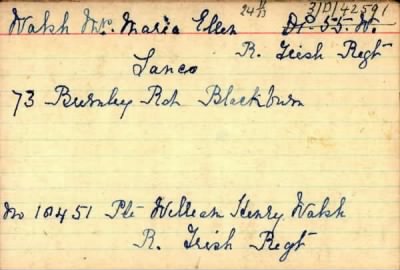 Walsh Mrs. Maria Ellen 24 11/13 3/D/42591
Dr. 55. W.
R. Irish Regt
Lancs
73 Burnley Rd Blackburn
No 10451 Pte William Henry Walsh
R. Irish Regt